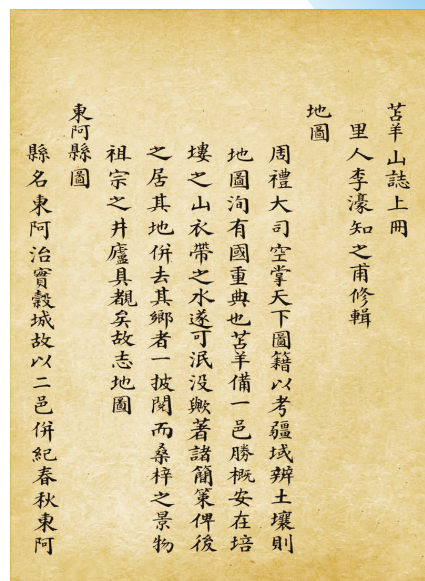 苫羊山誌上冊
里人李濠知之甫修輯
地圖
周禮大司空掌天下圖籍以考疆域辨土壤則
地圖洵有國重典也苫羊備一邑勝概安在培
塿之山衣帶之水遂可泯没歟著諸簡策俾後
之居其地併去其鄉者一披閱而桑梓之景物
祖宗之井廬具覩矣故志地圖
東阿縣圖
縣名東阿治實穀城故以二邑併紀春秋東阿